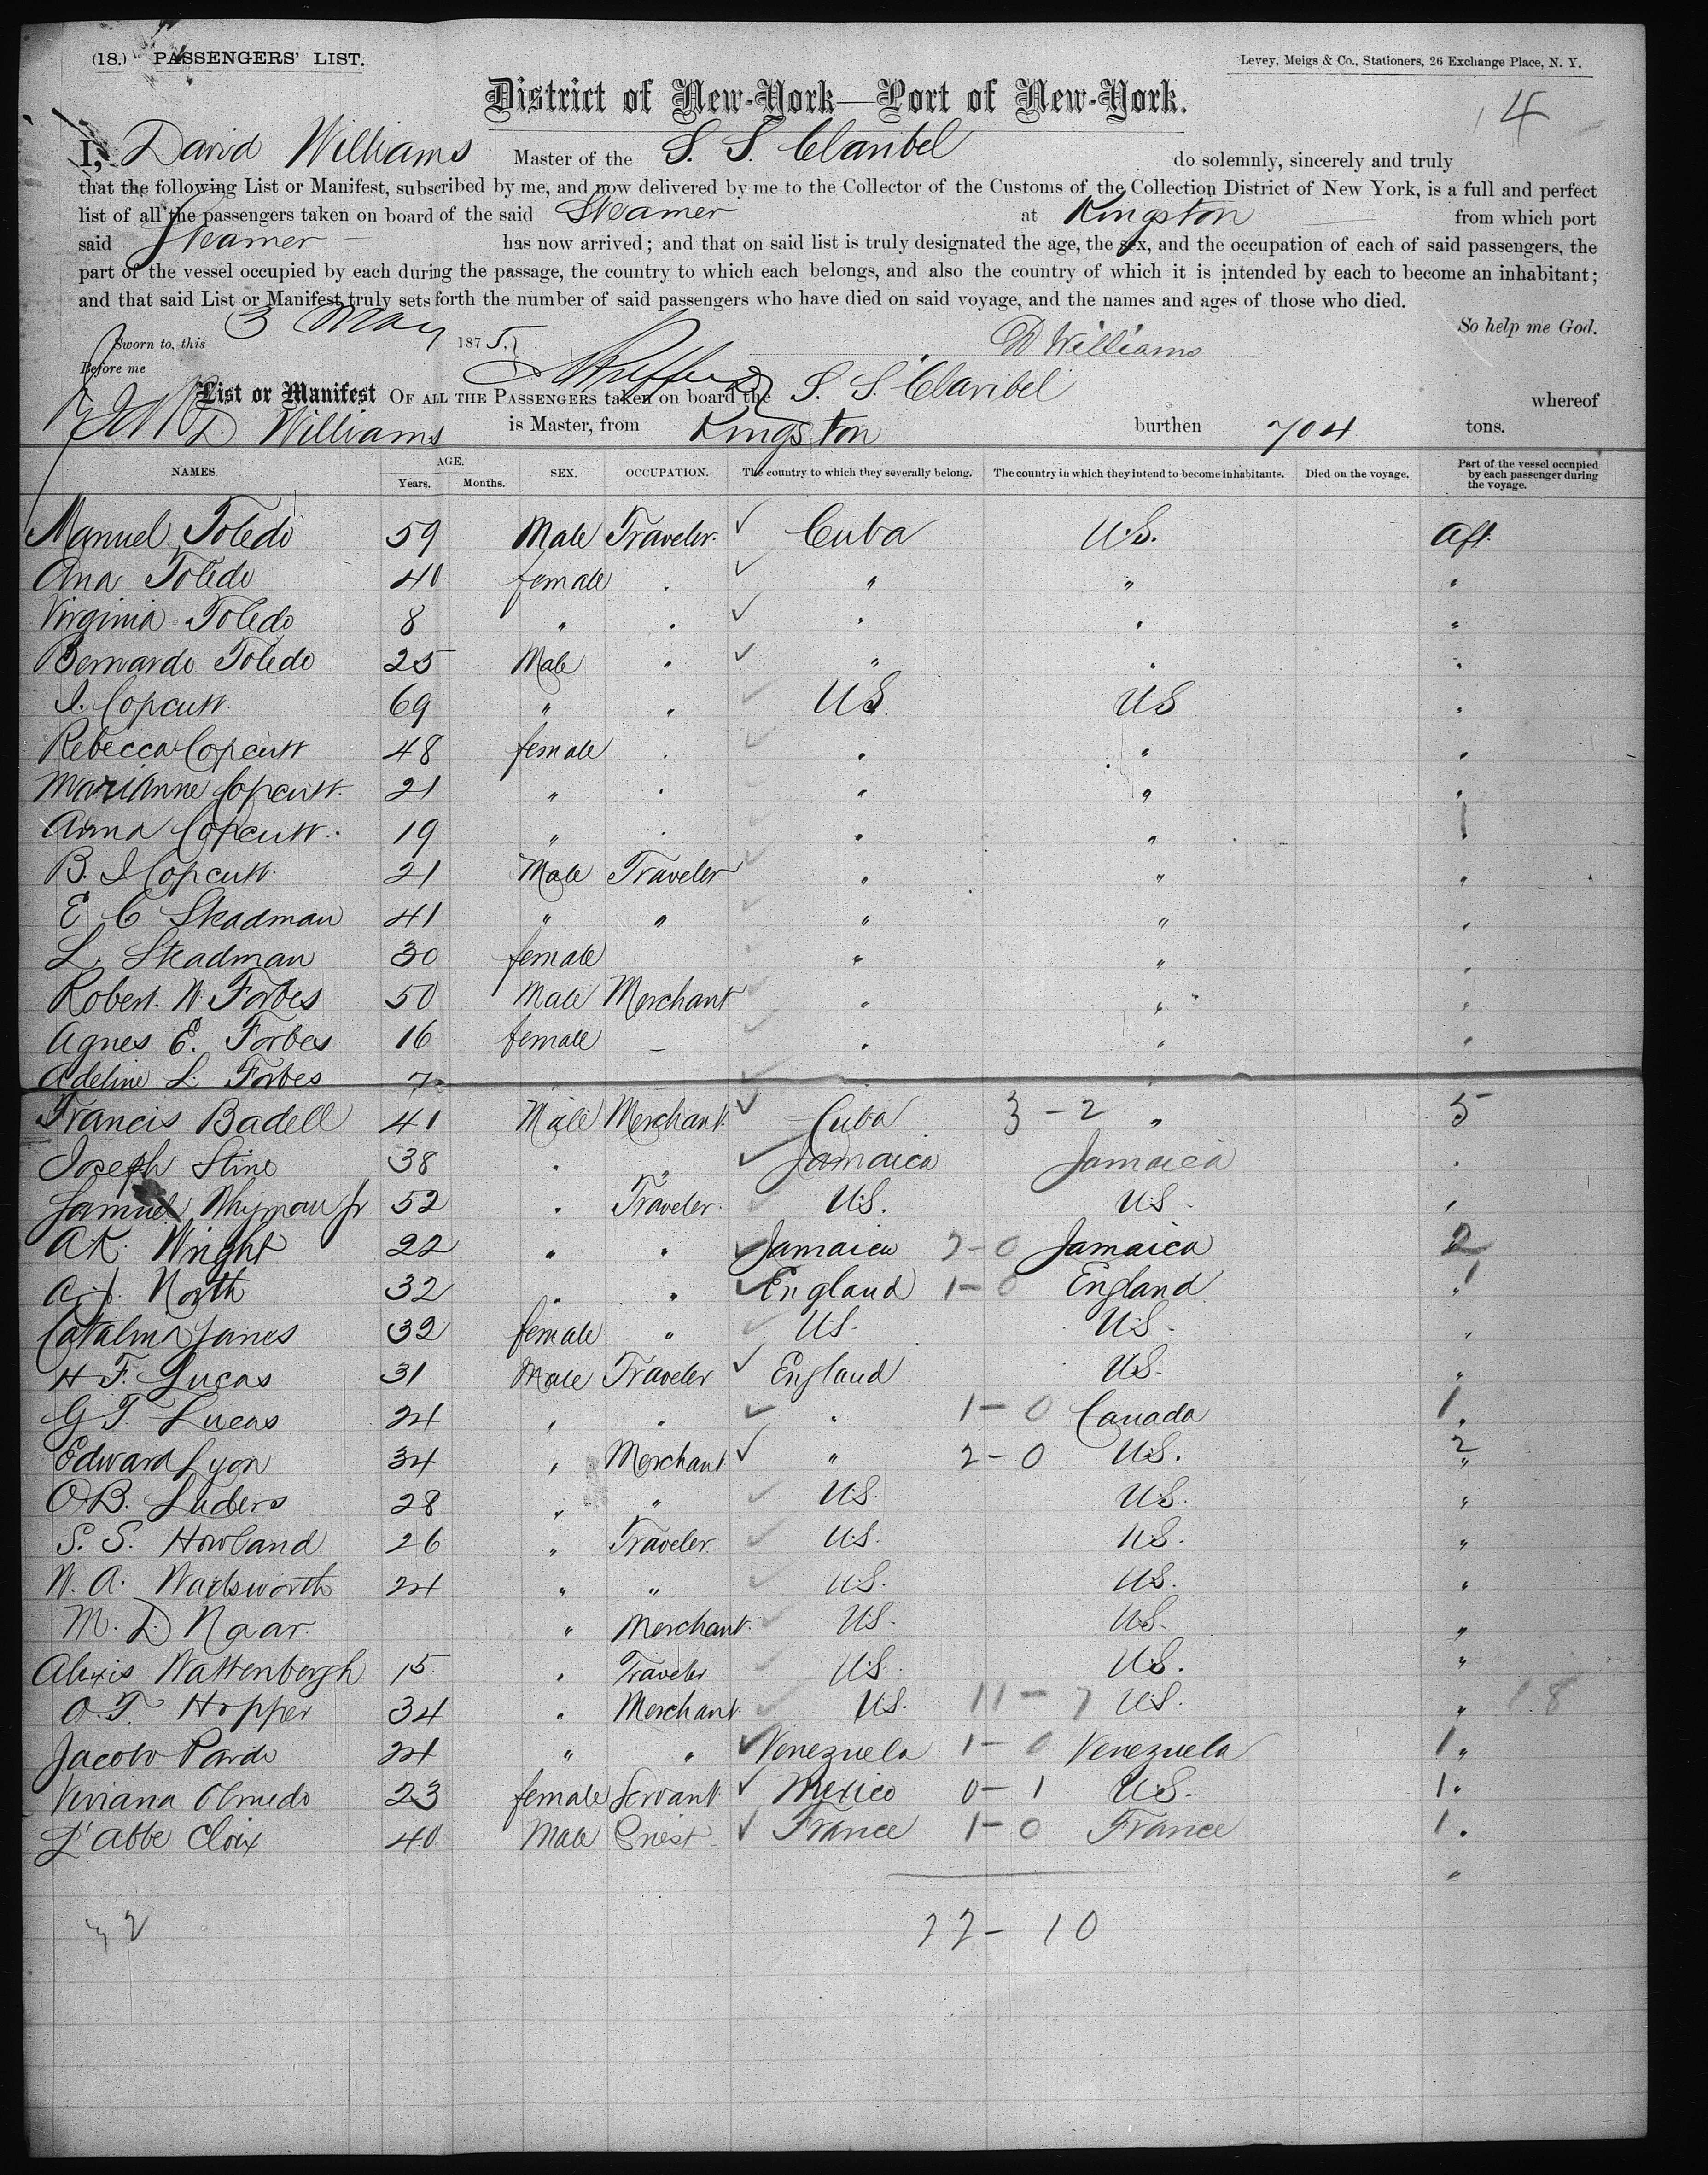 (18.) PASSENGERS' LIST.
Levey, Meigs & Co., Stationers, 26 Exchange Place, N. Y.
District of New-York—Port of New-York.
4
I, David Williams Master of the S. S. Claribel do solemnly, sincerely and truly
that the following List or Manifest, subscribed by me, and now delivered by me to the Collector of the Customs of the Collection District of New York, is a full and perfect
list of all the passengers taken on board of the said Steamer at Kingston from which port
said Steamer has now arrived; and that on said list is truly designated the age, the sex, and the occupation of each of said passengers, the
part of the vessel occupied by each during the passage, the country to which each belongs, and also the country of which it is intended by each to become an inhabitant;
and that said List or Manifest truly sets forth the number of said passengers who have died on said voyage, and the names and ages of those who died.
So help me God.
Sworn to, this 3 May 1875, D Williams
Before me
List or Manifest OF ALL THE PASSENGERS taken on board the S. S. Claribel whereof
D Williams is Master, from Kingston burthen 704 tons.
NAMES. AGE. Years. Months. SEX. OCCUPATION. The country to which they severally belong. The country in which they intend to become inhabitants. Died on the voyage. Part of the vessel occupied by each passenger during the voyage.
Manuel Toledo 59 Male Traveler ✓ Cuba U.S. Aft.
Ana Toledo 40 female " ✓ " " "
Virginia Toledo 8 " " ✓ " " "
Bernardo Toledo 25 Male " ✓ " " "
J. Copcutt 69 " " ✓ US. US "
Rebecca Copcutt 48 female " ✓ " " "
Marianne Copcutt 21 " " ✓ " " "
Anna Copcutt 19 " " ✓ " " "
B. J Copcutt 21 Male Traveler ✓ " " "
E C Steadman 41 " " ✓ " " "
L. Steadman 30 female " " "
Robert W. Forbes 50 Male Merchant ✓ " " "
Agnes E. Forbes 16 female – ✓ " " "
Adeline L. Forbes 7 ✓
Francis Badell 41 Male Merchant ✓ Cuba 3 - 2 " 5
Joseph Stine 38 " " ✓ Jamaica Jamaica "
Samuel Whyman Jr 52 " Traveler ✓ U.S. US "
A K. Wright 22 " " ✓ Jamaica 2-0 Jamaica 2
A. J. North 32 " " ✓ England 1-0 England 1
Catalina Janes 32 female " ✓ U.S. U.S. "
H F. Lucas 31 Male Traveler ✓ England U.S. "
G T. Lucas 24 " " ✓ " 1-0 Canada 1
Edward Lyon 34 " Merchant ✓ " 2-0 U.S. 2
O.B. Luders 28 " " ✓ U.S. U.S. "
S. S. Howland 26 " Traveler ✓ U.S. U.S. "
W. A. Wadsworth 24 " " ✓ U.S. U.S. "
M. D. Naar " Merchant ✓ U.S. U.S. "
Alexis Wattenbergh 15 " Traveler ✓ U.S. U.S. "
O. T. Hopper 34 " Merchant ✓ U.S. 11-7 U.S. " 18
Jacob Pardo 24 " " ✓ Venezuela 1-0 Venezuela 1 "
Viviana Olmedo 23 female Servant ✓ Mexico 0-1 U.S. 1 "
L'abbe Cloix 40 Male Priest ✓ France 1-0 France 1 "
"
32 22-10